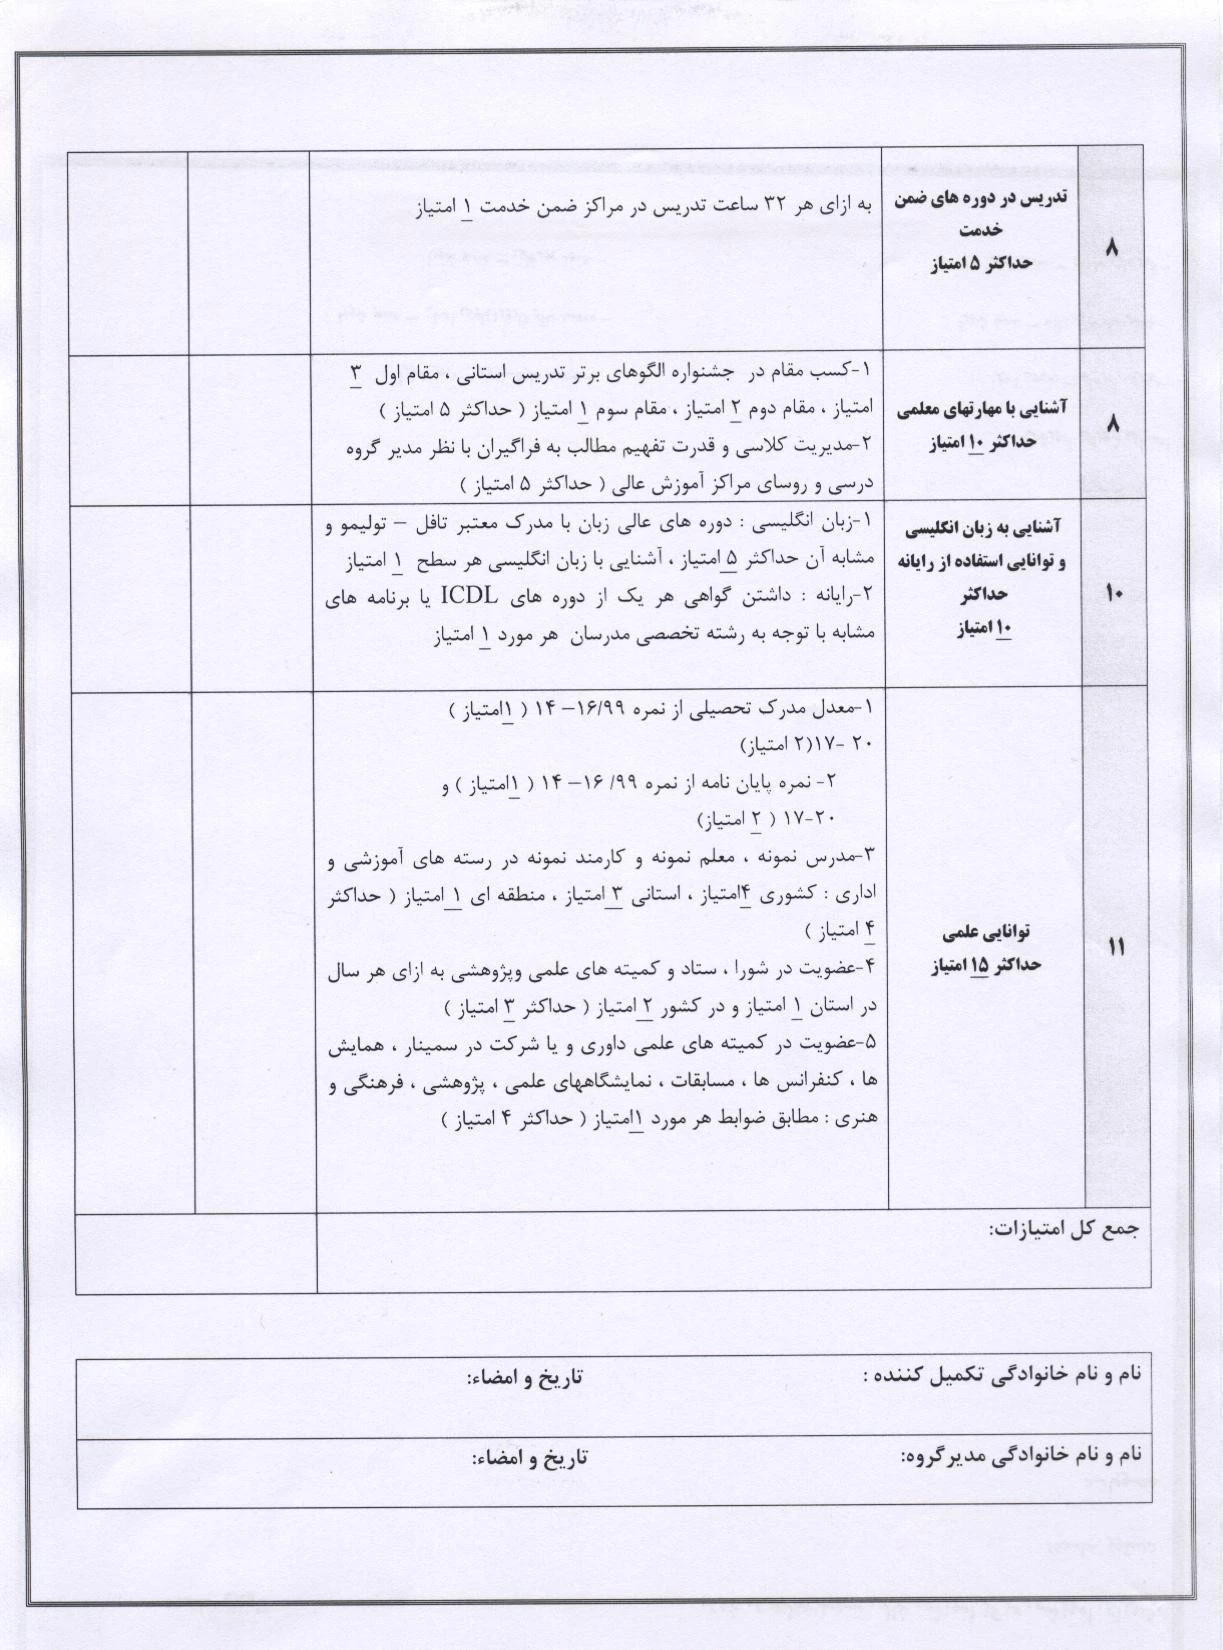 ۸
تدریس در دوره های ضمن
خدمت
حداکثر ۵ امتیاز
به ازای هر ۳۲ ساعت تدریس در مراکز ضمن خدمت ۱ امتیاز
۸
آشنایی با مهارتهای معلمی
حداکثر ۱۰ امتیاز
۱-کسب مقام در جشنواره الگوهای برتر تدریس استانی ، مقام اول ۳
امتیاز ، مقام دوم ۲ امتیاز ، مقام سوم ۱ امتیاز ( حداکثر ۵ امتیاز )
۲-مدیریت کلاسی و قدرت تفهیم مطالب به فراگیران با نظر مدیر گروه
درسی و روسای مراکز آموزش عالی ( حداکثر ۵ امتیاز )
۱۰
آشنایی به زبان انگلیسی
و توانایی استفاده از رایانه
حداکثر
۱۰ امتیاز
۱-زبان انگلیسی : دوره های عالی زبان با مدرک معتبر تافل – تولیمو و
مشابه آن حداکثر ۵ امتیاز ، آشنایی با زبان انگلیسی هر سطح ۱ امتیاز
۲-رایانه : داشتن گواهی هر یک از دوره های ICDL یا برنامه های
مشابه با توجه به رشته تخصصی مدرسان هر مورد ۱ امتیاز
۱۱
توانایی علمی
حداکثر ۱۵ امتیاز
۱-معدل مدرک تحصیلی از نمره ۱۶/۹۹– ۱۴ ( ۱امتیاز )
۲۰ -۱۷(۲ امتیاز)
۲- نمره پایان نامه از نمره ۹۹/ ۱۶– ۱۴ ( ۱امتیاز ) و
۲۰-۱۷ ( ۲ امتیاز)
۳-مدرس نمونه ، معلم نمونه و کارمند نمونه در رسته های آموزشی و
اداری : کشوری ۴امتیاز ، استانی ۳ امتیاز ، منطقه ای ۱ امتیاز ( حداکثر
۴ امتیاز )
۴-عضویت در شورا ، ستاد و کمیته های علمی وپژوهشی به ازای هر سال
در استان ۱ امتیاز و در کشور ۲ امتیاز ( حداکثر ۳ امتیاز )
۵-عضویت در کمیته های علمی داوری و یا شرکت در سمینار ، همایش
ها ، کنفرانس ها ، مسابقات ، نمایشگاههای علمی ، پژوهشی ، فرهنگی و
هنری : مطابق ضوابط هر مورد ۱امتیاز ( حداکثر ۴ امتیاز )
جمع کل امتیازات:
نام و نام خانوادگی تکمیل کننده : تاریخ و امضاء:
نام و نام خانوادگی مدیرگروه: تاریخ و امضاء: